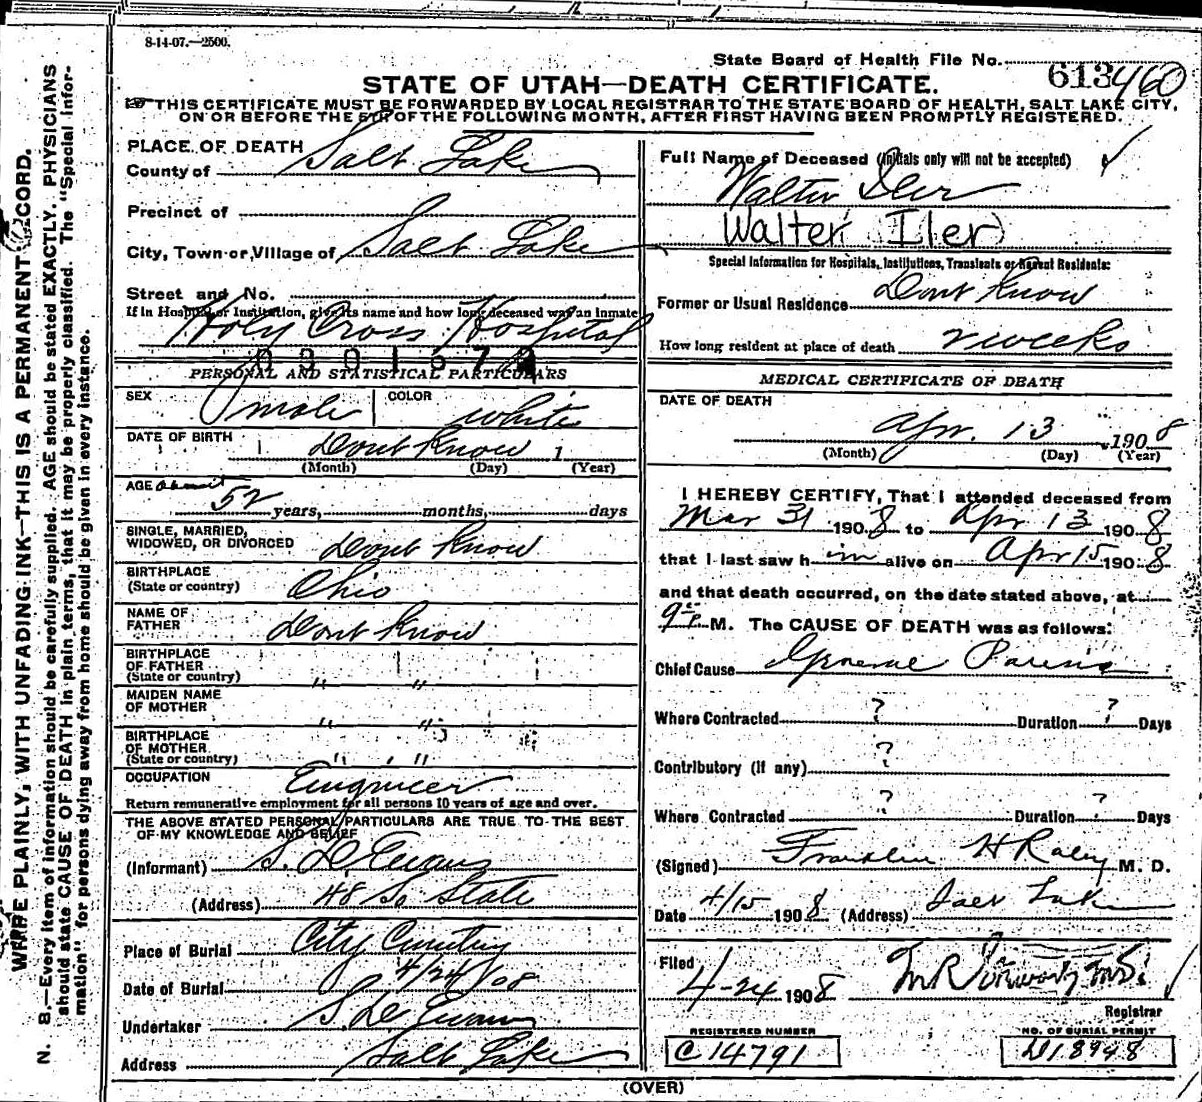 8-14-07.—2500.
State Board of Health File No. 613 460
STATE OF UTAH—DEATH CERTIFICATE.
THIS CERTIFICATE MUST BE FORWARDED BY LOCAL REGISTRAR TO THE STATE BOARD OF HEALTH, SALT LAKE CITY,
ON OR BEFORE THE 5TH OF THE FOLLOWING MONTH, AFTER FIRST HAVING BEEN PROMPTLY REGISTERED.
WRITE PLAINLY, WITH UNFADING INK—THIS IS A PERMANENT RECORD.
N. B.—Every item of information should be carefully supplied. AGE should be stated EXACTLY. PHYSICIANS
should state CAUSE OF DEATH in plain terms, that it may be properly classified. The "Special Infor-
mation" for persons dying away from home should be given in every instance.
PLACE OF DEATH
County of Salt Lake
Precinct of
City, Town or Village of Salt Lake
Street and No.
If in Hospital or Institution, give its name and how long deceased was an inmate
Holy Cross Hospital
PERSONAL AND STATISTICAL PARTICULARS
SEX male COLOR white
DATE OF BIRTH Dont Know 1
(Month) (Day) (Year)
AGE about 52 years, months, days
SINGLE, MARRIED,
WIDOWED, OR DIVORCED Dont Know
BIRTHPLACE
(State or country) Ohio
NAME OF
FATHER Dont Know
BIRTHPLACE
OF FATHER
(State or country) " "
MAIDEN NAME
OF MOTHER " "
BIRTHPLACE
OF MOTHER
(State or country) " "
OCCUPATION Engineer
Return remunerative employment for all persons 10 years of age and over.
THE ABOVE STATED PERSONAL PARTICULARS ARE TRUE TO THE BEST
OF MY KNOWLEDGE AND BELIEF
(Informant) S. D. Evans
(Address) 48 So State
Place of Burial City Cemetery
Date of Burial 4/24/08
Undertaker S. D. Evans
Address Salt Lake
Full Name of Deceased (Initials only will not be accepted)
Walter Iler
Walter (Iler)
Special Information for Hospitals, Institutions, Transients or Recent Residents:
Former or Usual Residence Dont Know
How long resident at place of death 2 weeks
MEDICAL CERTIFICATE OF DEATH
DATE OF DEATH
Apr. 13 1908
(Month) (Day) (Year)
I HEREBY CERTIFY, That I attended deceased from
Mar 31 1908 to Apr 13 1908
that I last saw him alive on Apr 15 1908
and that death occurred, on the date stated above, at
9 P M. The CAUSE OF DEATH was as follows:
Chief Cause General Paresis
Where Contracted ? Duration ? Days
Contributory (if any) ?
Where Contracted ? Duration ? Days
(Signed) Franklin H Raley M. D.
Date 4/15 1908 (Address) Salt Lake
Filed
4-24 1908
Registrar
REGISTERED NUMBER
C 14791
NO. OF BURIAL PERMIT
D18948
(OVER)